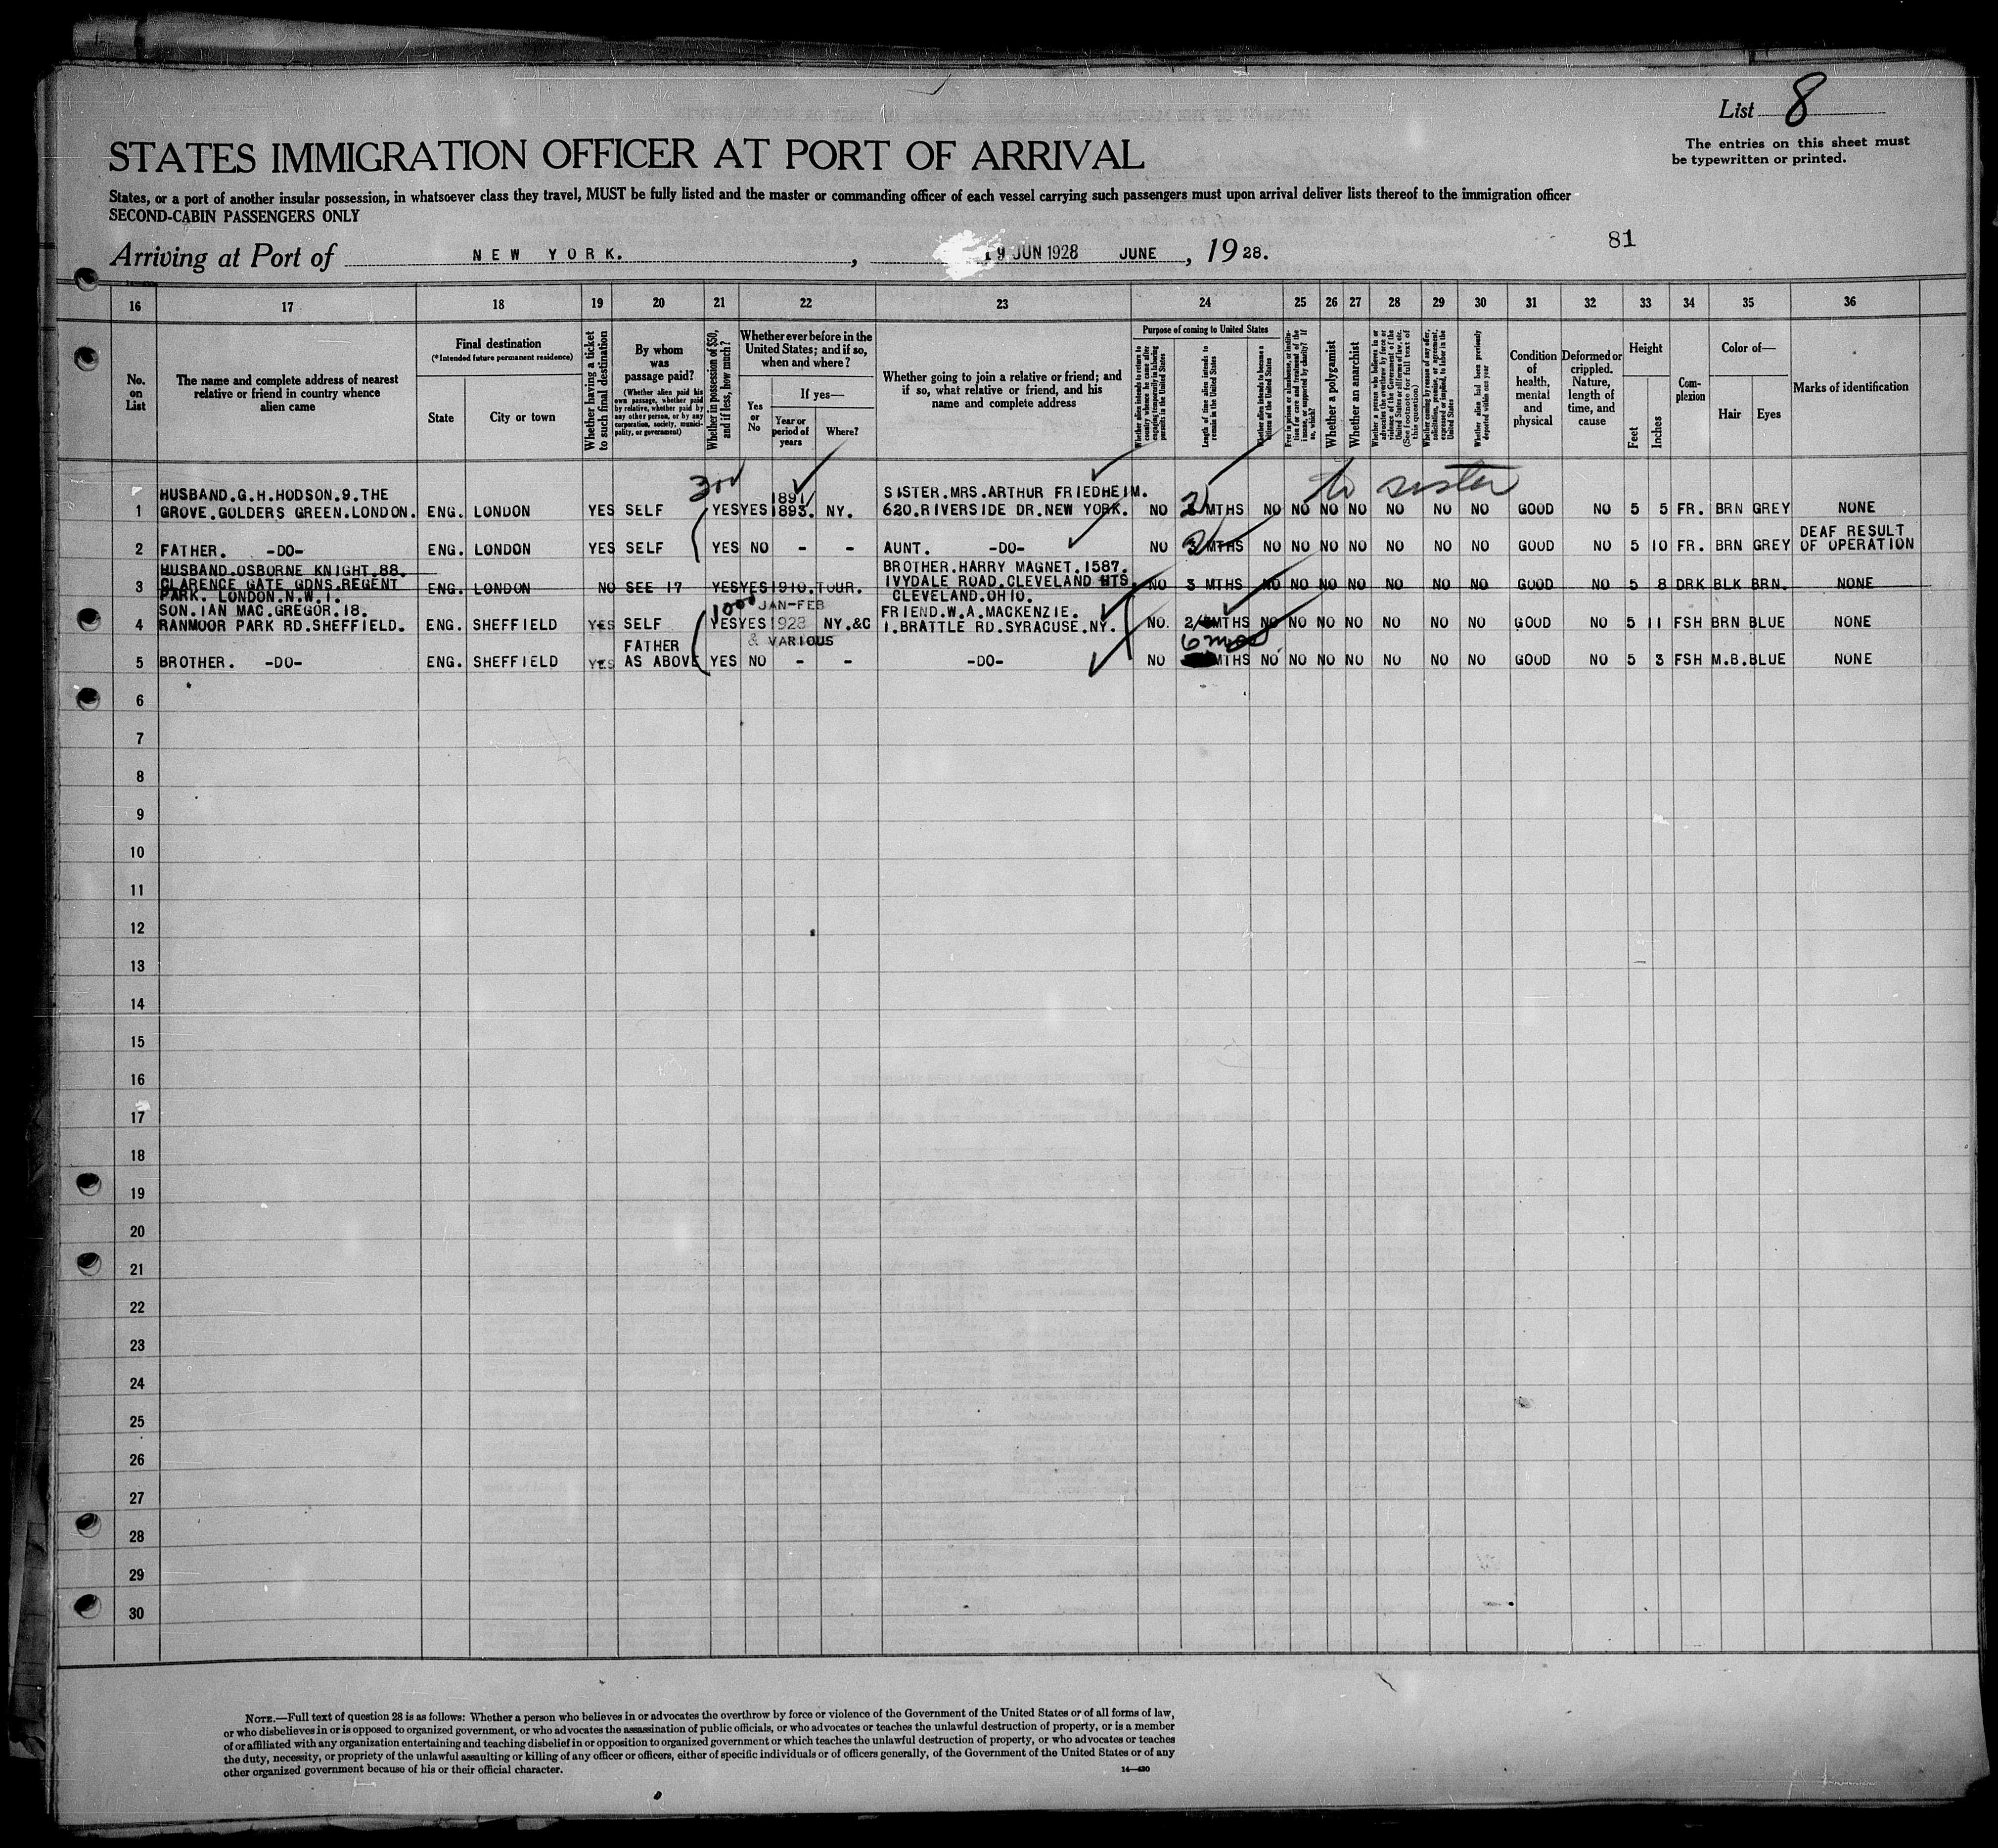 List 8
The entries on this sheet must
be typewritten or printed.
STATES IMMIGRATION OFFICER AT PORT OF ARRIVAL
States, or a port of another insular possession, in whatsoever class they travel, MUST be fully listed and the master or commanding officer of each vessel carrying such passengers must upon arrival deliver lists thereof to the immigration officer
SECOND-CABIN PASSENGERS ONLY
81
Arriving at Port of NEW YORK. , 19 JUN 1928 JUNE , 19 28.
16 17 18 19 20 21 22 23 24 25 26 27 28 29 30 31 32 33 34 35 36
No. on List
The name and complete address of nearest
relative or friend in country whence
alien came
Final destination
(*Intended future permanent residence)
State
City or town
Whether having a ticket
to such final destination
By whom
was
passage paid?
(Whether alien paid his
own passage, whether paid
by relative, whether paid by
any other person, or by any
corporation, society, munici-
pality, or government)
Whether in possession of $50,
and if less, how much?
Whether ever before in the
United States; and if so,
when and where?
Yes
or
No
If yes—
Year or
period of
years
Where?
Whether going to join a relative or friend; and
if so, what relative or friend, and his
name and complete address
Purpose of coming to United States
Whether alien intends to return to
country whence he came after
engaging temporarily in laboring
pursuits in the United States
Length of time alien intends to
remain in the United States
Whether alien intends to become a
citizen of the United States
Ever in prison or almshouse, or institu-
tion for care and treatment of the
insane, or supported by charity? If
so, which?
Whether a polygamist
Whether an anarchist
Whether a person who believes in or
advocates the overthrow by force or
violence of the Government of the
United States or all forms of law, etc.
(See footnote for full text of
this question)
Whether coming by reason of any offer,
solicitation, promise, or agreement,
expressed or implied, to labor in the
United States
Whether alien had been previously
deported within one year
Condition
of
health,
mental
and
physical
Deformed or
crippled.
Nature,
length of
time, and
cause
Height
Feet
Inches
Com-
plexion
Color of—
Hair
Eyes
Marks of identification
300
to sister
HUSBAND.G.H.HODSON.9.THE 1891/ SISTER.MRS.ARTHUR FRIEDHEIM.
1 GROVE.GOLDERS GREEN.LONDON. ENG. LONDON YES SELF YES YES 1893. NY. 620.RIVERSIDE DR.NEW YORK. NO 2 MTHS NO NO NO NO NO NO NO GOOD NO 5 5 FR. BRN GREY NONE
DEAF RESULT
2 FATHER. -DO- ENG. LONDON YES SELF YES NO - - AUNT. -DO- NO 2 MTHS NO NO NO NO NO NO NO GOOD NO 5 10 FR. BRN GREY OF OPERATION
HUSBAND.OSBORNE KNIGHT.88. BROTHER.HARRY MAGNET.1587.
3 CLARENCE GATE GDNS.REGENT ENG. LONDON NO SEE 17 YES YES 1910. TOUR. IVYDALE ROAD.CLEVELAND HTS. NO 3 MTHS NO NO NO NO NO NO NO GOOD NO 5 8 DRK BLK BRN. NONE
PARK. LONDON.N.W.1. CLEVELAND.OHIO.
SON.IAN MAC.GREGOR.18. 1000 JAN-FEB FRIEND.W.A.MACKENZIE.
4 RANMOOR PARK RD.SHEFFIELD. ENG. SHEFFIELD YES SELF YES YES 1923 NY.&C 1.BRATTLE RD.SYRACUSE.NY. NO. 2/ MTHS NO NO NO NO NO NO NO GOOD NO 5 11 FSH BRN BLUE NONE
FATHER & VARIOUS 6 mos
5 BROTHER. -DO- ENG. SHEFFIELD YES AS ABOVE YES NO - - -DO- NO MTHS NO NO NO NO NO NO NO GOOD NO 5 3 FSH M.B. BLUE NONE
6
7
8
9
10
11
12
13
14
15
16
17
18
19
20
21
22
23
24
25
26
27
28
29
30
NOTE.—Full text of question 28 is as follows: Whether a person who believes in or advocates the overthrow by force or violence of the Government of the United States or of all forms of law,
or who disbelieves in or is opposed to organized government, or who advocates the assassination of public officials, or who advocates or teaches the unlawful destruction of property, or is a member
of or affiliated with any organization entertaining and teaching disbelief in or opposition to organized government or which teaches the unlawful destruction of property, or who advocates or teaches
the duty, necessity, or propriety of the unlawful assaulting or killing of any officer or officers, either of specific individuals or of officers generally, of the Government of the United States or of any
other organized government because of his or their official character.
14—430